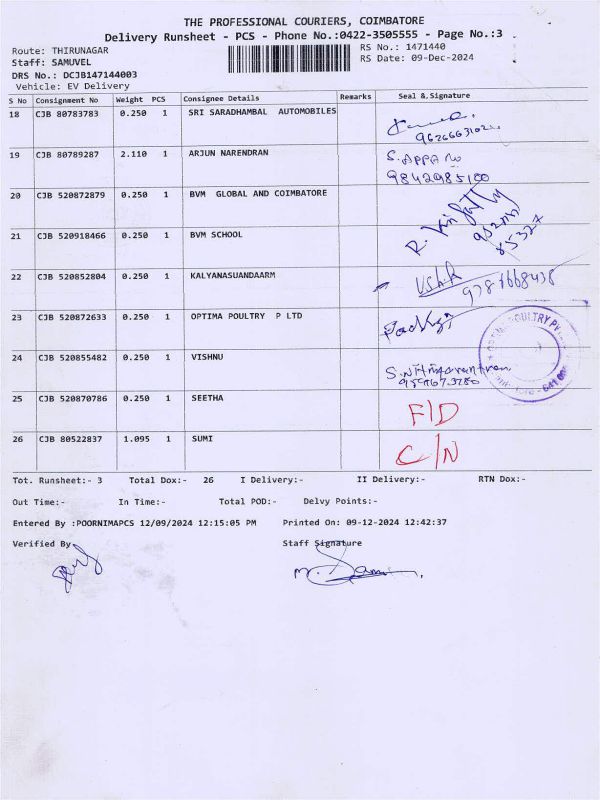 THE PROFESSIONAL COURIERS, COIMBATORE
Delivery Runsheet - PCS - Phone No.:0422-3505555 - Page No.:3
Route: THIRUNAGAR
RS No.: 1471440
Staff: SAMUVEL
RS Date: 09-Dec-2024
DRS No.: DCJB147144003
Vehicle: EV Delivery
S No Consignment No Weight PCS Consignee Details Remarks Seal & Signature
18 CJB 80783783 0.250 1 SRI SARADHAMBAL AUTOMOBILES
19 CJB 80789287 2.110 1 ARJUN NARENDRAN S. APPA
9842985100
20 CJB 520872879 0.250 1 BVM GLOBAL AND COIMBATORE
21 CJB 520918466 0.250 1 BVM SCHOOL R.
85327
22 CJB 520852804 0.250 1 KALYANASUANDAARM
23 CJB 520872633 0.250 1 OPTIMA POULTRY P LTD
24 CJB 520855482 0.250 1 VISHNU
25 CJB 520870786 0.250 1 SEETHA F/D
26 CJB 80522837 1.095 1 SUMI C/N
Tot. Runsheet:- 3 Total Dox:- 26 I Delivery:- II Delivery:- RTN Dox:-
Out Time:- In Time:- Total POD:- Delvy Points:-
Entered By :POORNIMAPCS 12/09/2024 12:15:05 PM Printed On: 09-12-2024 12:42:37
Verified By Staff Signature